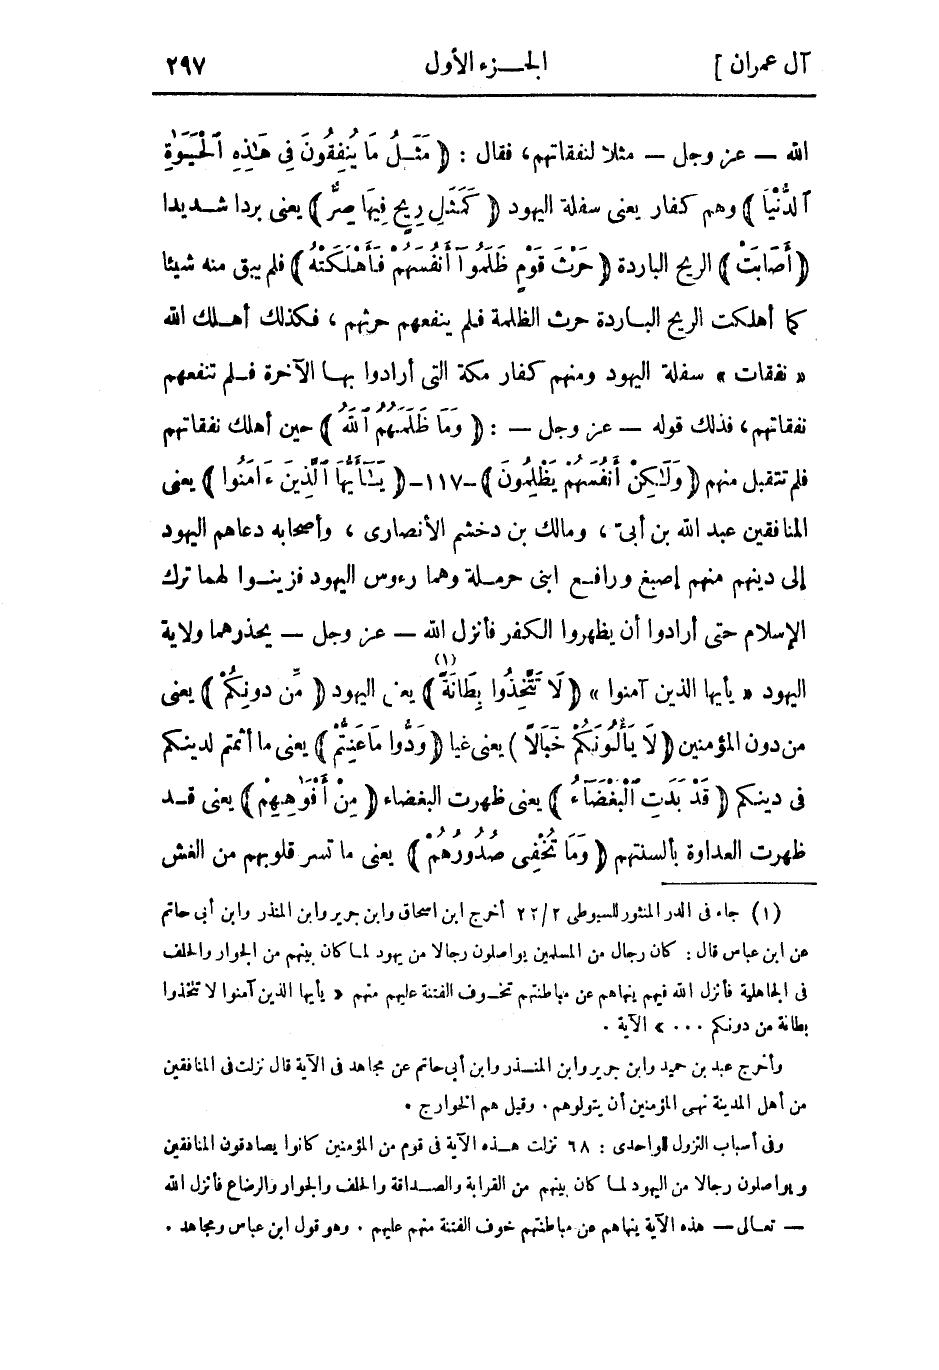 آل عمران ] الجـــزء الأول ٢٩٧
الله — عز وجل — مثلا لنفقاتهم، فقال : ﴿ مَثَـلُ مَا يُنفِقُونَ فِى هَـٰذِهِ ٱلْحَيَوٰةِ
ٱلدُّنْيَا ﴾ وهم كفار يعنى سفلة اليهود ﴿ كَمَثَلِ رِيحٍ فِيهَا صِرٌّ ﴾ يعنى بردا شـديدا
﴿ أَصَابَتْ ﴾ الريح الباردة ﴿ حَرْثَ قَوْمٍ ظَلَمُوٓا أَنفُسَهُمْ فَأَهْلَكَتْهُ ﴾ فلم يبق منه شيئا
كما أهلكت الريح البـاردة حرث الظلمة فـلم ينفعهم حرثهم ، فكذلك أهـلك الله
« نفقات » سفلة اليهود ومنهم كفار مكة التى أرادوا بهـا الآخرة فـلم تنفعهم
نفقاتهم، فذلك قوله — عز وجل — : ﴿ وَمَا ظَلَمَهُمُ ٱللَّهُ ﴾ حين أهلك نفقاتهم
فلم تتقبل منهم ﴿ وَلَـٰكِنْ أَنفُسَهُمْ يَظْلِمُونَ ﴾ -١١٧- ﴿ يَـٰٓأَيُّهَا ٱلَّذِينَ ءَامَنُوا ﴾ يعنى
المنافقين عبد الله بن أبىّ ، ومالك بن دخشم الأنصارى ، وأصحابه دعاهم اليهود
إلى دينهم منهم إصبغ ورافـع ابنى حرمـلة وهما رءوس اليهود فزينـوا لهما ترك
الإسلام حتى أرادوا أن يظهروا الكفر فأنزل الله — عز وجل — يحذرهما ولاية
اليهود « يأيها الذين آمنوا » ﴿ لَا تَتَّخِذُوا بِطَانَةً ﴾ (١) يعنى اليهود ﴿ مِّن دُونِكُمْ ﴾ يعنى
من دون المؤمنين ﴿ لَا يَأْلُونَكُمْ خَبَالًا ﴾ يعنى غيا ﴿ وَدُّوا مَاعَنِتُّمْ ﴾ يعنى ما أثمتم لدينكم
فى دينكم ﴿ قَدْ بَدَتِ ٱلْبَغْضَآءُ ﴾ يعنى ظهرت البغضاء ﴿ مِنْ أَفْوَٰهِهِمْ ﴾ يعنى قـد
ظهرت العداوة بألسنتهم ﴿ وَمَا تُخْفِى صُدُورُهُمْ ﴾ يعنى ما تسر قلوبهم من الغش
(١) جاء فى الدر المنثور للسيوطى ٢/ ٢٢ أخرج ابن اسحاق وابن جرير وابن المنذر وابن أبى حاتم
عن ابن عباس قال : كان رجال من المسلمين يواصلون رجالا من يهود لمـا كان بينهم من الجوار والحلف
فى الجاهلية فأنزل الله فيهم ينهاهم عن مباطنتهم تخـوف الفتنة عليهم منهم « يأيها الذين آمنوا لا تتخذوا
بطانة من دونكم ... » الآية .
وأخرج عبد بن حميد وابن جرير وابن المنـذر وابن أبى حاتم عن مجاهد فى الآية قال نزلت فى المنافقين
من أهل المدينة نهـى المؤمنين أن يتولوهم . وقيل هم الخوارج .
وفى أسباب النزول للواحدى : ٦٨ نزلت هـذه الآية فى قوم من المؤمنين كانوا يصادقون المنافقين
ويواصلون رجالا من اليهود لمـا كان بينهم من القرابة والصـداقة والحلف والجوار والرضاع فأنزل الله
— تعـالى — هذه الآية ينهاهم عن مباطنتهم خوف الفتنة منهم عليهم . وهو قول ابن عباس ومجاهد .